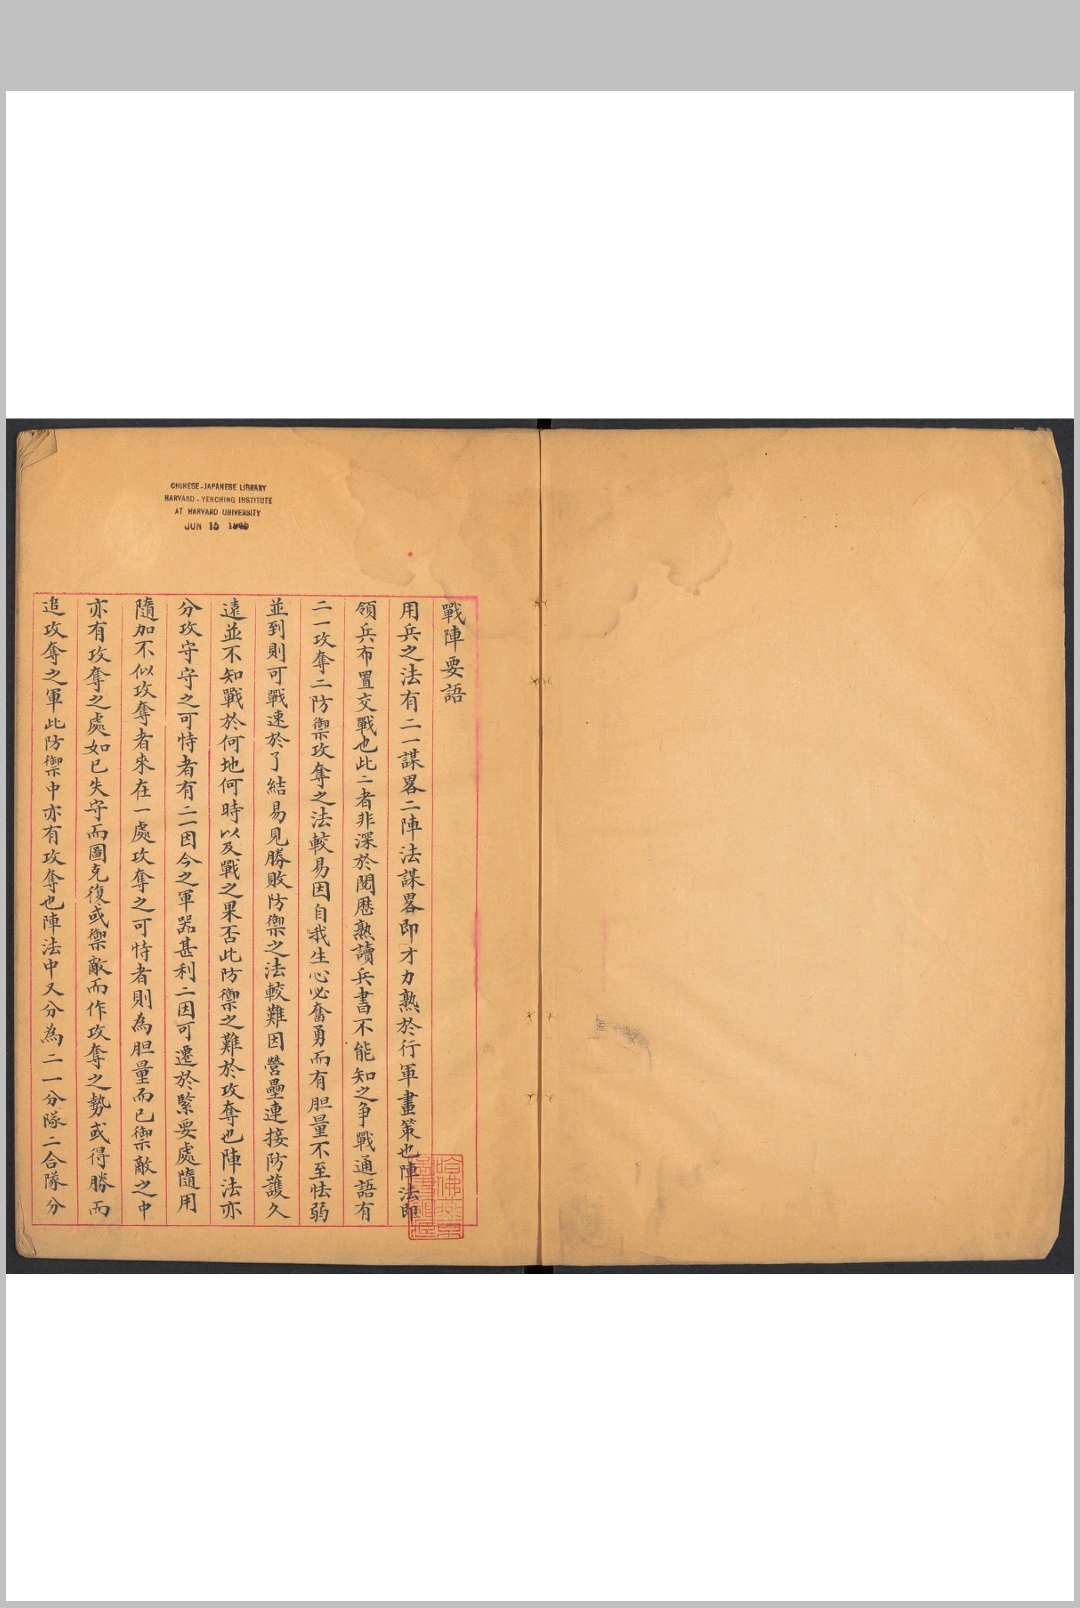 戰陣要語
用兵之法有二一謀畧二陣法謀畧即才力熟於行軍畫策也陣法即
領兵布置交戰也此二者非深於閱歷熟讀兵書不能知之争戰通語有
二一攻奪二防禦攻奪之法較易因自我生心必奮勇而有胆量不至怯弱
並到則可戰速於了結易見勝敗防禦之法較難因營壘連接防護久
遠並不知戰於何地何時以及戰之果否此防禦之難於攻奪也陣法亦
分攻守守之可恃者有二一因今之軍器甚利二因可遷於緊要處隨用
隨加不似攻奪者來在一處攻奪之可恃者則為胆量而已禦敵之中
亦有攻奪之處如已失守而圖克復或禦敵而作攻奪之勢或得勝而
追攻奪之軍此防禦中亦有攻奪也陣法中又分為二一分隊二合隊分
CHINESE-JAPANESE LIBRARY
HARVARD-YENCHING INSTITUTE
AT HARVARD UNIVERSITY
JUN 15